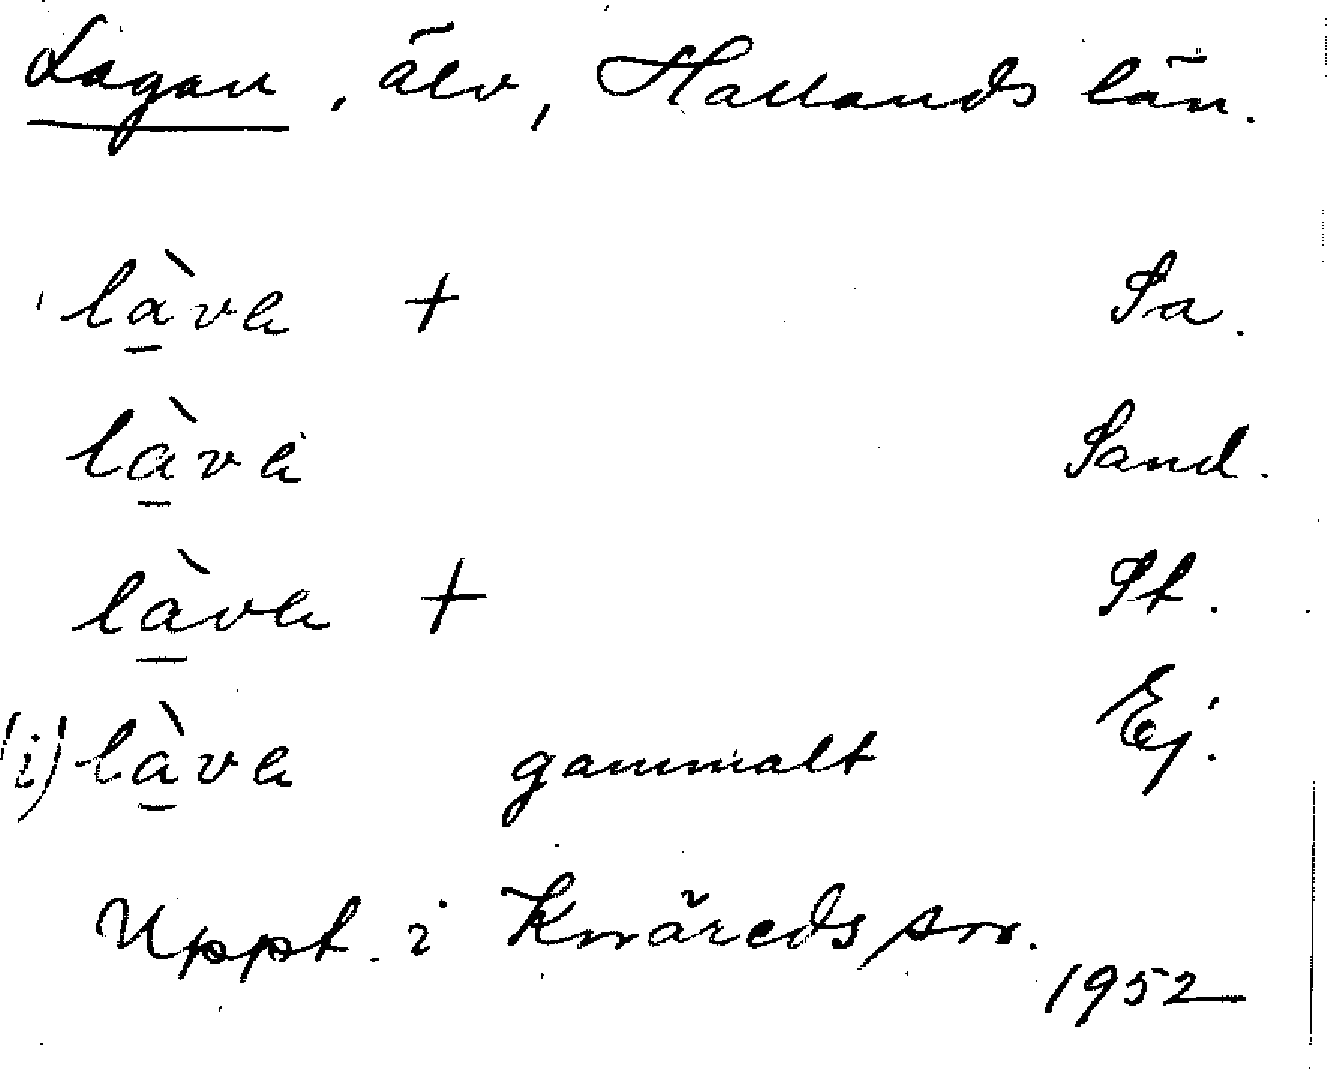 Lagan, älv, Hallands län.
là̱va + Sa.
là̱va Sand.
là̱va + St.
(i) là̱va gammalt Ej.
Uppt. i Knäreds sn.
1952